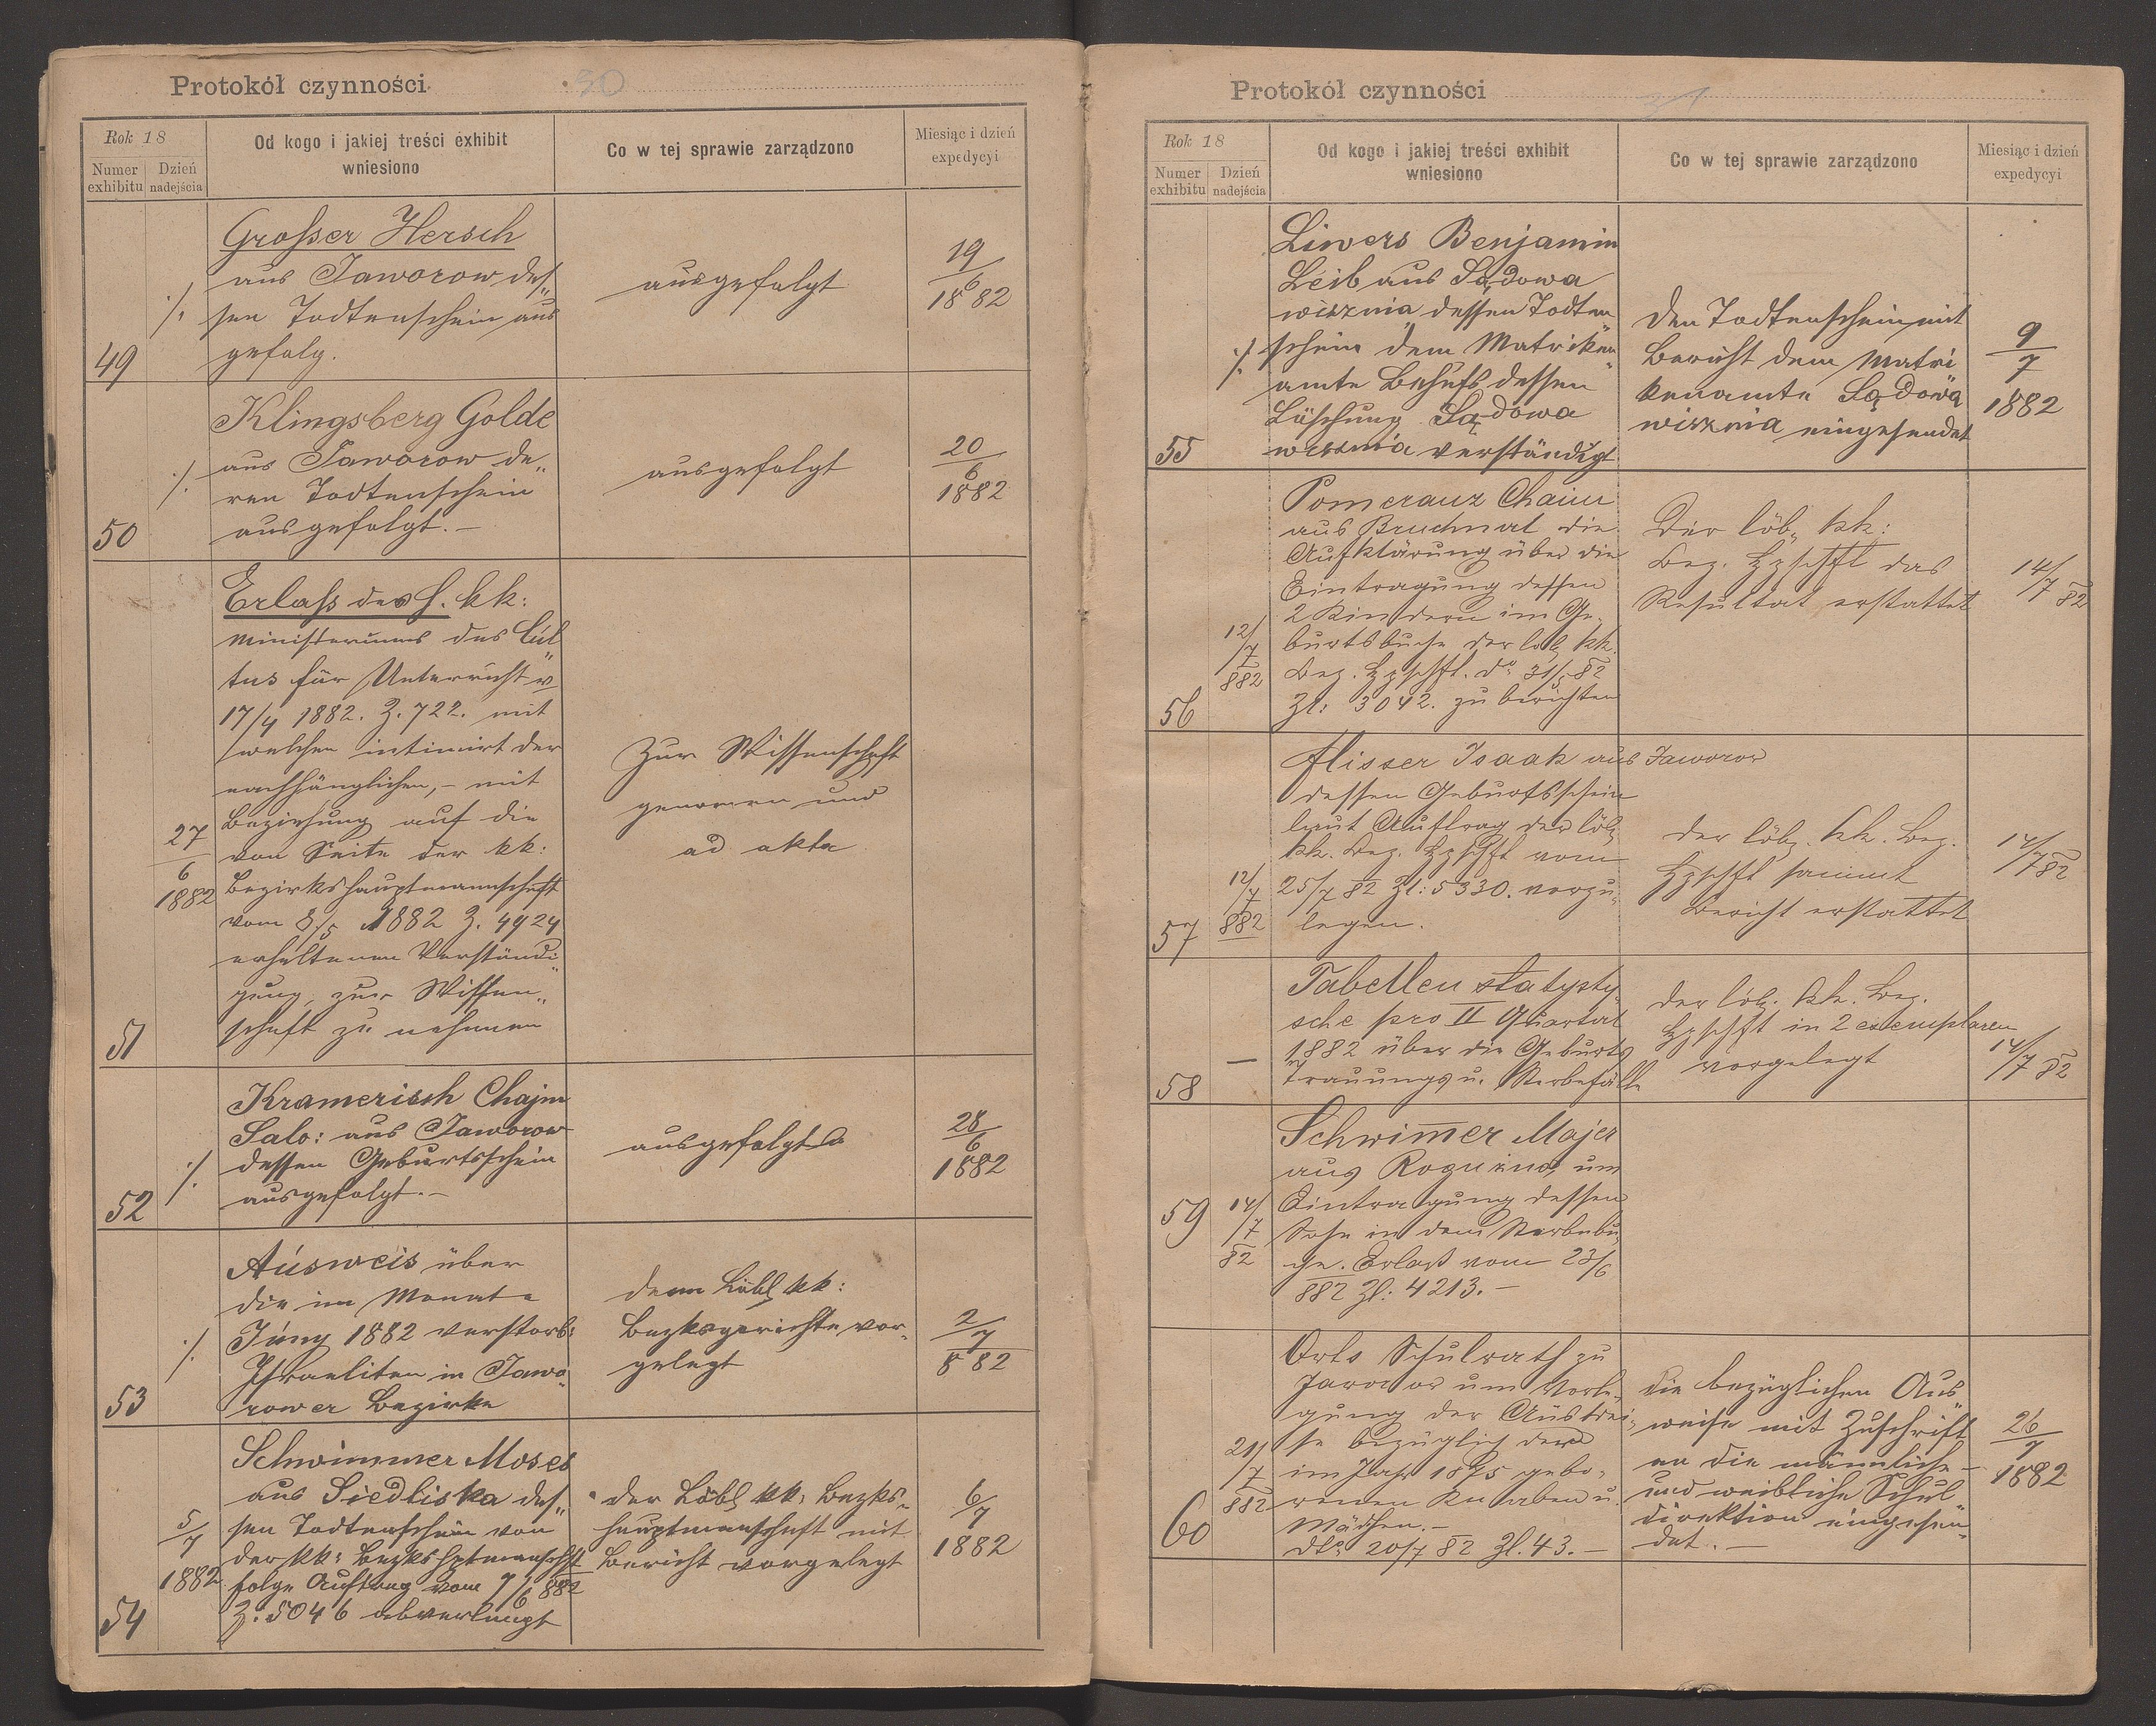 Protokół czynności
30
Rok 18
Numer exhibitu
Dzień nadejścia
Od kogo i jakiej treści exhibit
wniesiono
Co w tej sprawie zarządzono
Miesiąc i dzień
expedycyi
49
./.
Großer Hersch
aus Jaworow des„
sen Todtenschein aus
gefolg.
ausgefolgt
19
6
1882
50
./.
Klingsberg Golde
aus Jaworow de„
ren Todtenschein
ausgefolgt.—
ausgefolgt
20
6
1882
51
27
6
1882
Erlaß des h. kk:
Ministeriums des Cul„
tus für Unterricht v
17/4 1882. Z. 722. mit
welchen intimirt der
nachhänglichen,— mit
Beziehung auf die
von Seite der kk:
Bezirkshauptmannschaft
vom 8/5 1882 Z. 4924
erhaltenen Verständi„
gung, zur Wissen„
schaft zu nehmen
Zur Wissenschaft
genomen und
ad akta
52
./.
Kramerisch Chajm
Salo: aus Jaworow
dessen Geburtsschein
ausgefolgt.—
ausgefolgt
28
6
1882
53
./.
Ausweis über
die im Monate
Juny 1882 verstorb:
Israeliten in Jawo„
rower Bezirke
dem Löbl kk:
Bezksgerichte vor„
gelegt
2
7
882
54
5
7
1882
Schwimmer Moses
aus Siedliska des„
sen Todtenschein von
der kk: Bezkshptmanschft
folge Auftrag vom 7/6 882
Z: 5046 abverlangt
der Löbl kk: Bezks„
hauptmanschaft mit
Bericht vorgelegt
6
7
1882
Protokół czynności
31
Rok 18
Numer exhibitu
Dzień nadejścia
Od kogo i jakiej treści exhibit
wniesiono
Co w tej sprawie zarządzono
Miesiąc i dzień
expedycyi
55
./.
Liwers Benjamin
Leib aus Sądowa
wisznia dessen Todten„
schein dem Matriken„
amte Behufs dessen
Löschung Sądowa
wisznia verständigt
den Todtenschein mit
Bericht dem Matri„
kenamte Sądowa
wisznia eingesendet
9
7
1882
56
12/
7
882
Pomeranz Chaim
aus Bruchnal die
Aufklärung über die
Eintragung dessen
2 Kindern im Ge„
burtsbuche der löb. kk.
Bez. Hptschft. dº 31/5 82
Zl: 3042. zu berichten
Der löb. kk:
Bez. Hptschft das
Resultat erstattet
14/
7 82
57
12/
7
882
Flisser Isaak aus Jaworow
dessen Geburtsschein
laut Auftrag der löb.
kk. Bez. Hptschft vom
25/7 82 Zl: 5330. vorzu„
legen.
der löb. kk. Bez.
Hptschft sammt
Bericht erstattet
14/
7 82
58
—
Tabellen statysty„
sche pro II Quartal
1882 über die Geburts
Trauungs u. Sterbefälle
der löb. kk. Bez.
Hptschft in 2 exemplaren
vorgelegt
14/
7 82
59
14/
7
82
Schwimer Majer
aus Roguźno, um
Eintragung dessen
Sohn in dem Sterbebu„
che. Erlaß vom 23/6
882 Zl: 4213.—
60
21/
7
882
Orts Schulrath zu
Jaworow um Vorle„
gung der Auswei„
se bezüglich der
im Jahr 1875 gebo„
renen Knaben u.
Mädchen.—
dto 20/7 82 Zl. 43.—
die bezüglichen Aus„
weise mit Zuschrift
an die männliche—
und weibliche Schul„
direktion eingesen„
det.—
26
7
1882